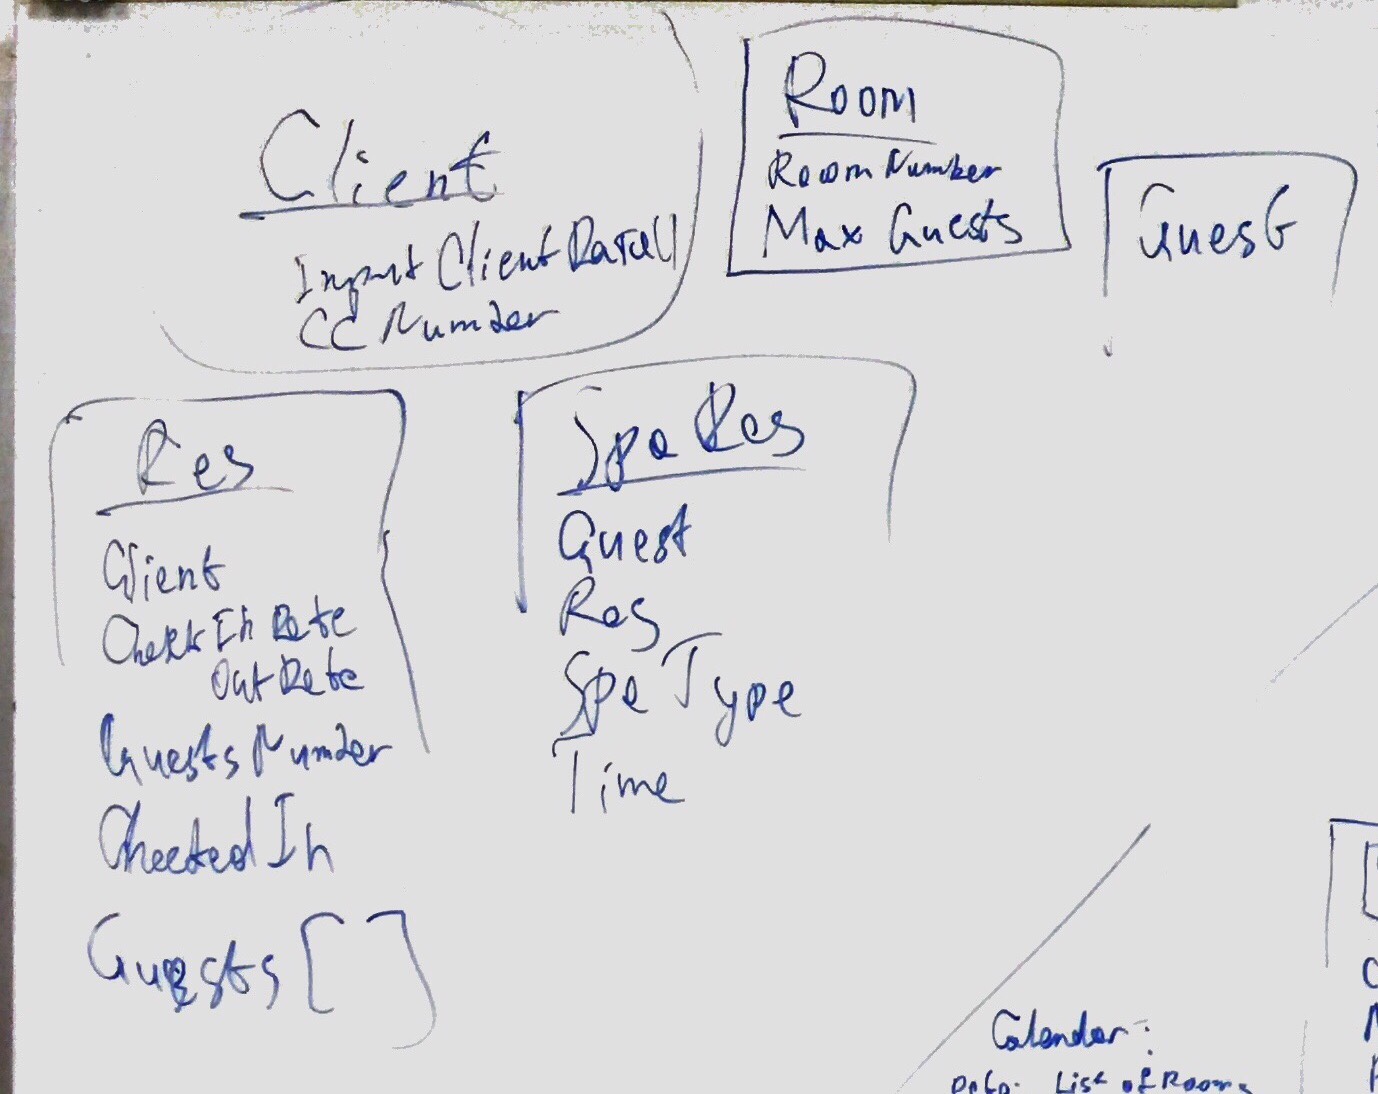 Client
Input Client Detail
CC Number
Room
Room Number
Max Guests
Guest
Res
Client
Check In Date
Out Date
Guests Number
Checked In
Guests [ ]
Spa Res
Guest
Res
Spa Type
Time
Calendar:
Date: List of Rooms